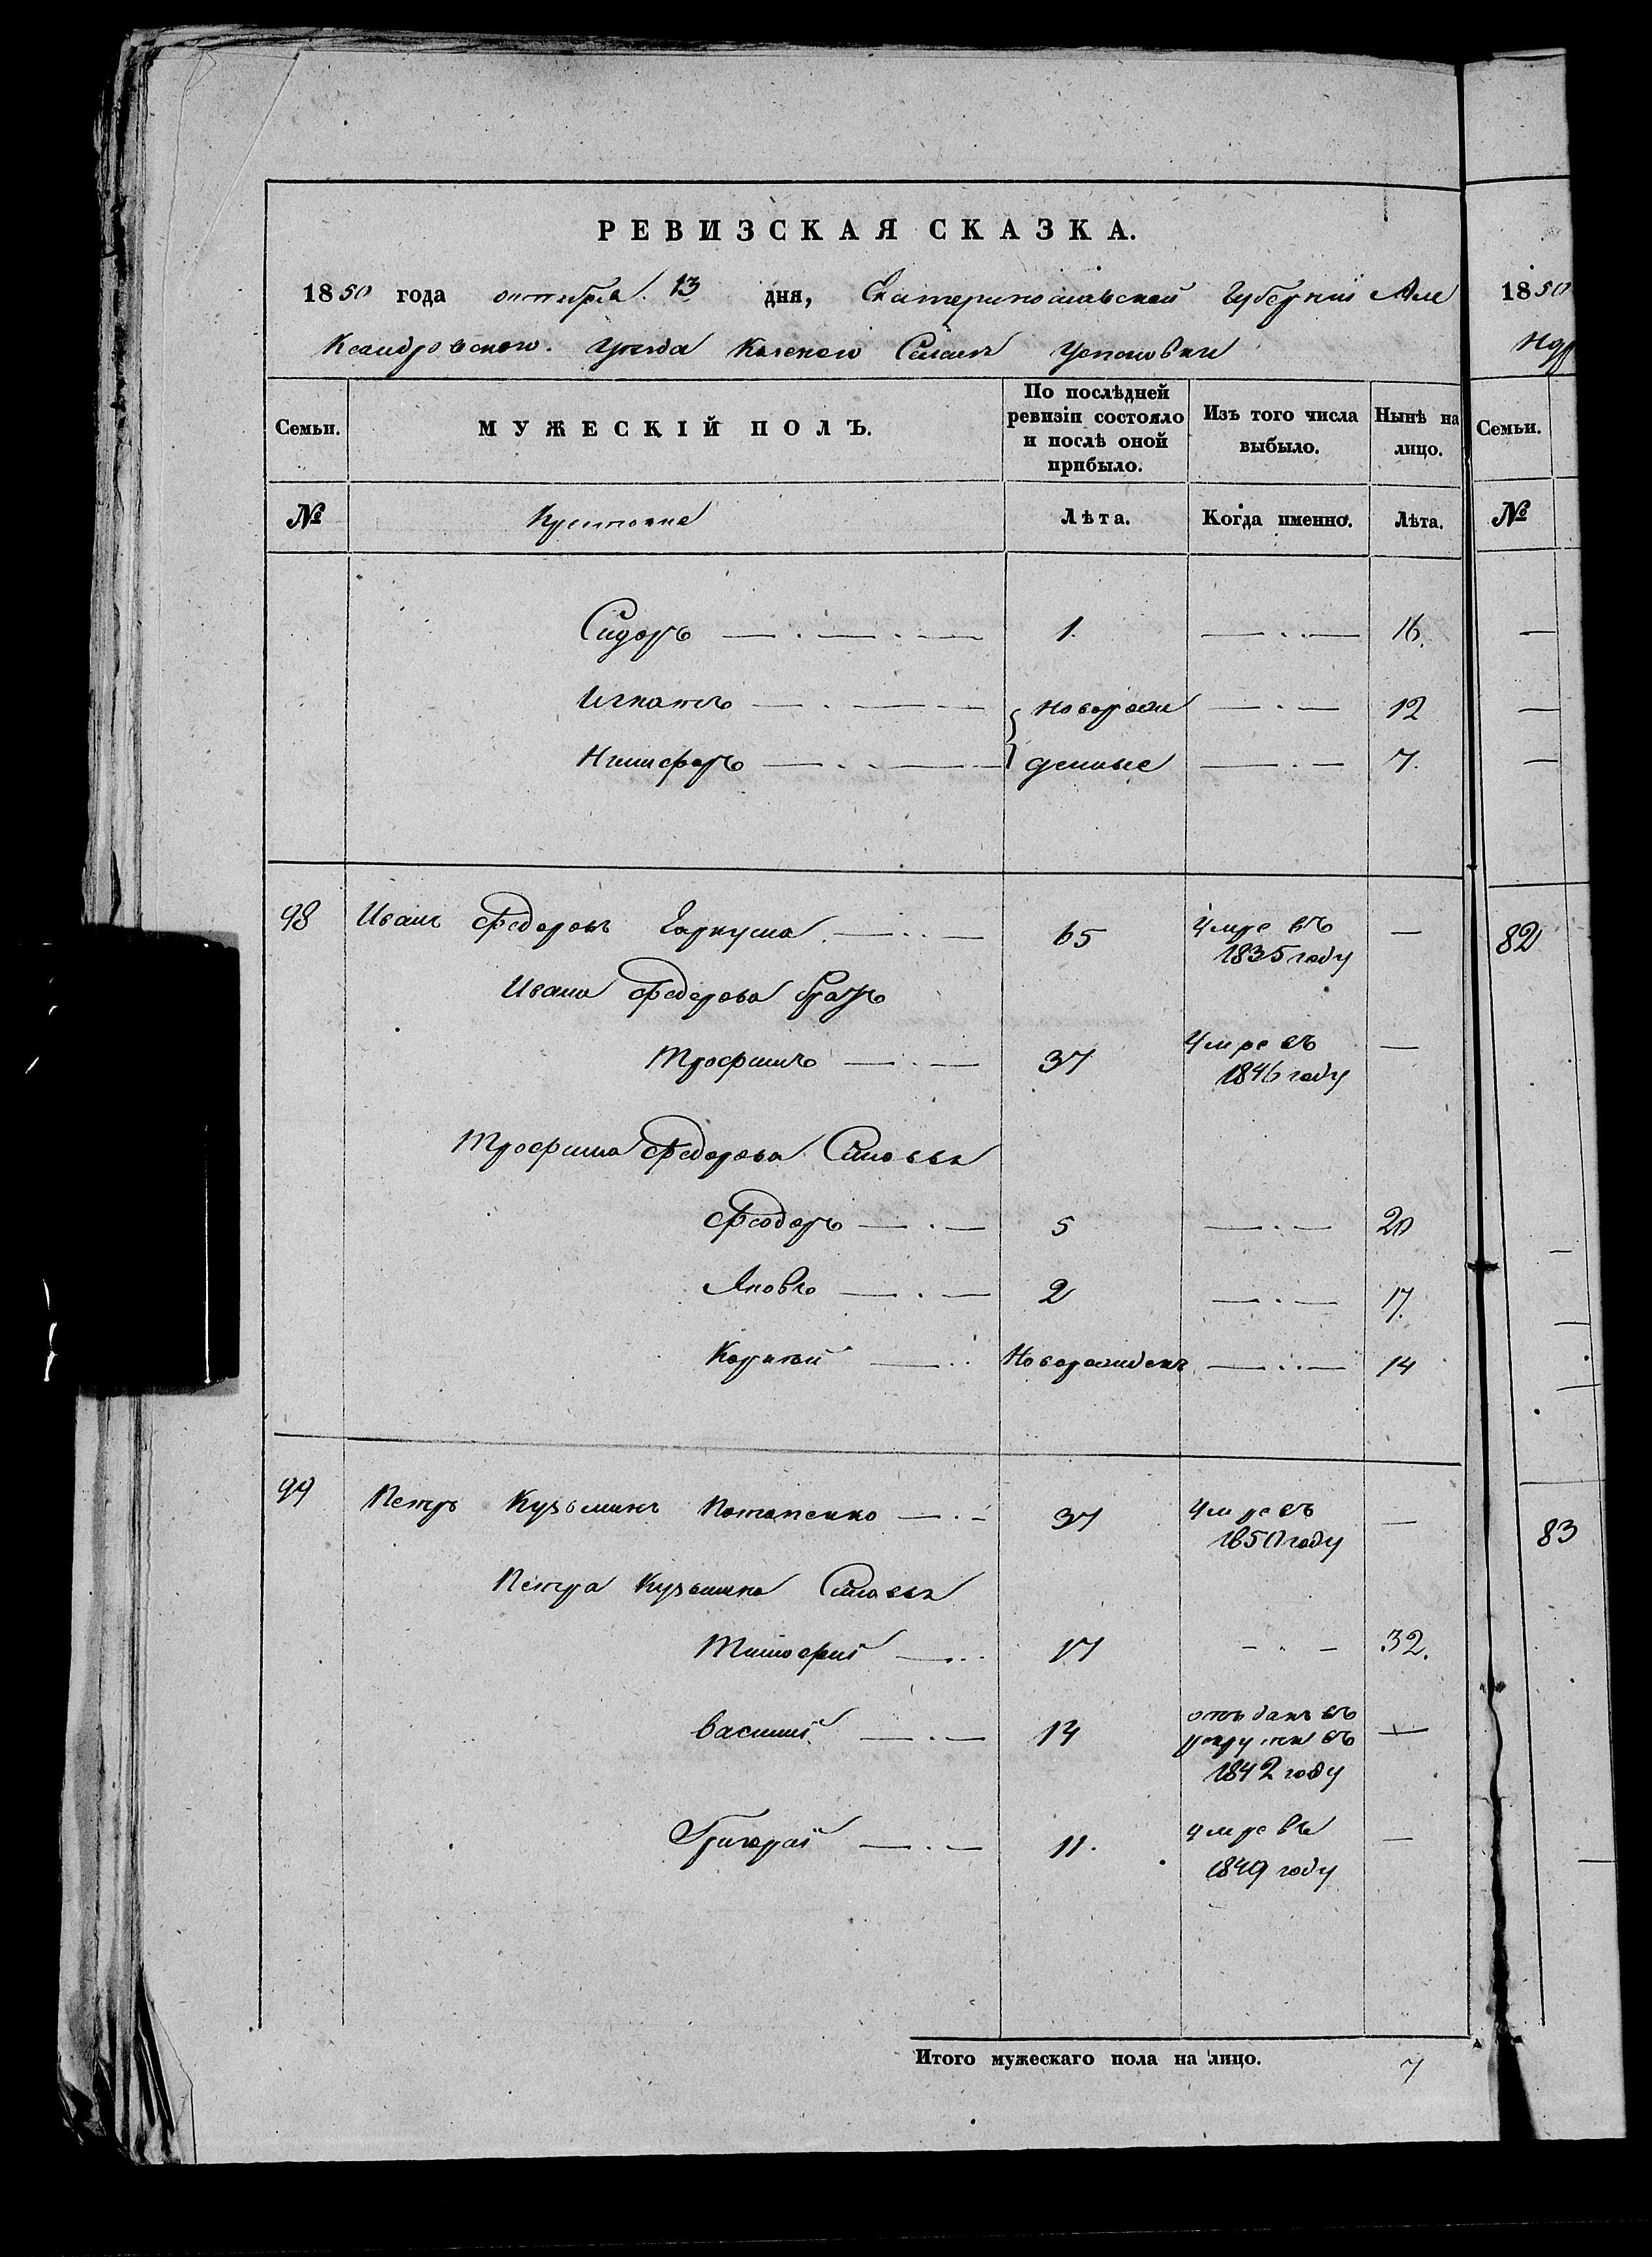 РЕВИЗСКАЯ СКАЗКА.
1850 года октября 13 дня, Екатеринославской Губернии Але
ксандровского Уезда Казеного Селенія Успеновки
Семьи. МУЖЕСКІЙ ПОЛЪ. По послѣдней ревизіи состояло и послѣ оной прибыло. Изъ того числа выбыло. Нынѣ на лицо.
№ Крестьяне Лѣта. Когда именно. Лѣта.
Сидоръ 1. 16.
Игнатъ новорож 12
Никифоръ денные 7.
98 Иванъ Федоровъ Гаркуша 65 умре въ —
1835 году
Ивана Федорова братъ
Трофимъ 37 умре въ —
1846 году
Трофима Федорова Сыновья
Феодоръ 5 20
Яковъ 2 17.
Корнѣй Новорожденъ 14
99 Петръ Кузьминъ Потапенко 37 умре въ —
1850 году
Петра Кузьмина Сыновья
Тимофей 17 32.
Василий 14 отъданъ въ —
рекруты въ
1842 году
Григорий 11. умре въ —
1849 году
Итого мужескаго пола на лицо. 7
1850
Семьи.
№
82
83